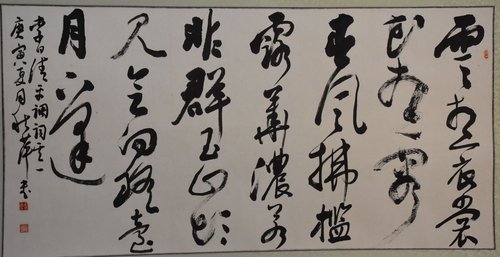 雲想衣裳
花想容
春風拂檻
露華濃若
非群玉山頭
見會向瑤臺
月下逢
李白清平調詞其一
庚寅夏月